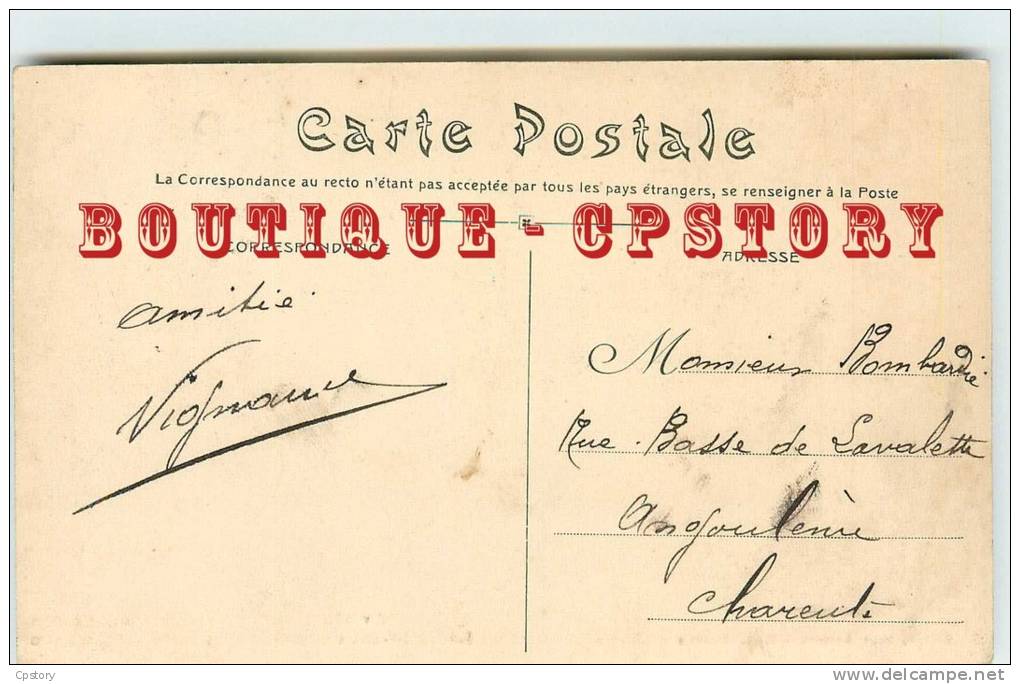 Carte Postale
La Correspondance au recto n'étant pas acceptée par tous les pays étrangers, se renseigner à la Poste
BOUTIQUE - CPSTORY
CORRESPONDANCE
ADRESSE
amitié
Monsieur Bombardié
Rue Basse de Lavalette
Angoulême
Charente
Cpstory
www.delcampe.net